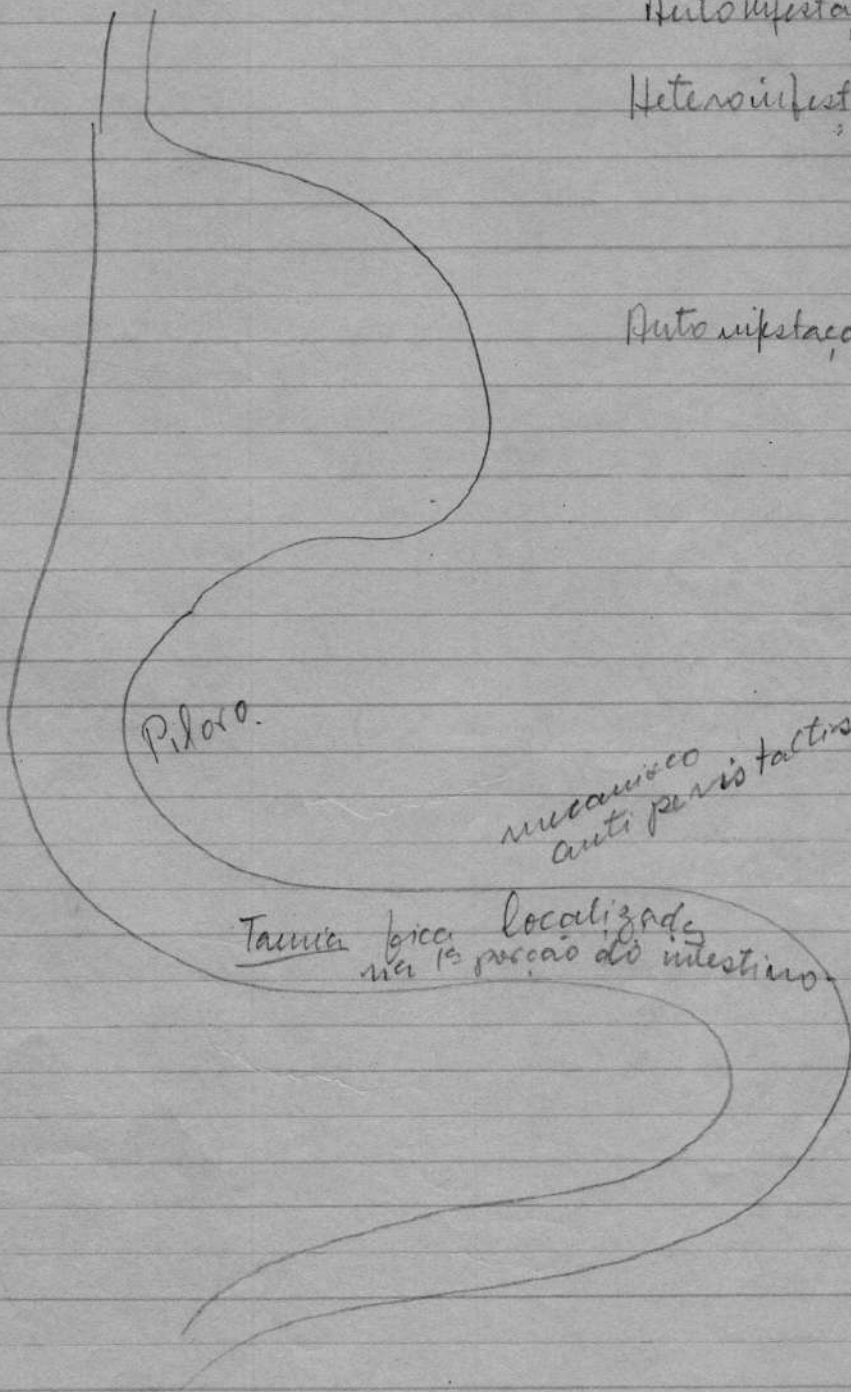 Autoinfesta
Heteroinfest
Autoinfestaçã
Piloro.
mecanisco
anti peristaltis
Taenia fica localizada
na 1ª porção do intestino.